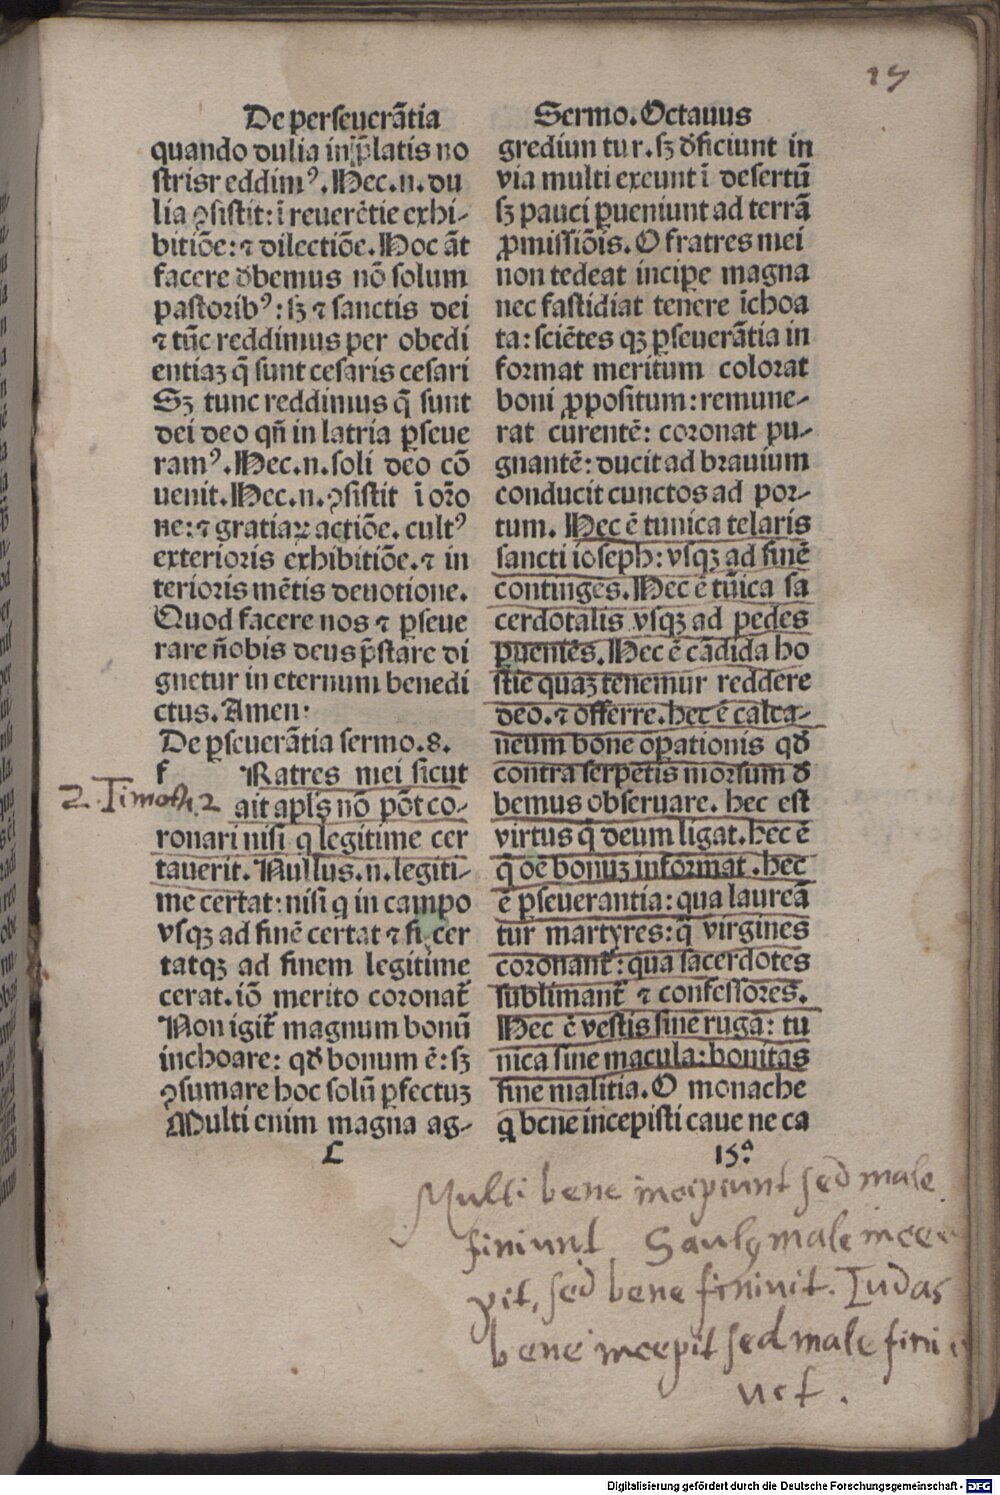 25
De perseuerãtia
quando dulia in p̃latis no
strisr eddim⁹. Hec.n.du
lia ꝯsistit: ĩ reuerẽtie exhi-
bitiõe: ⁊ dilectiõe. Hoc ãt
facere dbemus nõ solum
pastorib⁹: sꝫ ⁊ sanctis dei
⁊ tũc reddimus per obedi
entiaꝫ q̃ sunt cesaris cesari
Sꝫ tunc reddimus q̃ sunt
dei deo qñ in latria ꝑseue
ram⁹. Hec.n.soli deo cõ
uenit. Hec.n.ꝯsistit ĩ oro̅
ne: ⁊ gratiaꝝ actiõe. cult⁹
exterioris exhibitiõe. ⁊ in
terioris mẽtis deuotione.
Quod facere nos ⁊ ꝑseue
rare ñobis deus p̃stare di
gnetur in eternum benedi
ctus. Amen·
De ꝑseuerãtia sermo.8.
f Ratres mei sicut
2. Timoth. 2
ait apl's nõ põt co-
ronari nisi q legitime cer
tauerit. Nullus.n.legiti-
me certat: nisi q in campo
vsqꝫ ad finẽ certat ⁊ si cer
tatqꝫ ad finem legitime
cerat. iõ merito coronat̃
Non igit̃ magnum bonũ
inchoare: qd̃ bonum ẽ: sꝫ
ꝯsumare hoc solũ ꝑfectuꝫ
Multi enim magna ag-
C
Sermo. Octauus
grediun tur. sꝫ dficiunt in
via multi exeunt ĩ desertũ
sꝫ pauci ꝑueniunt ad terrã
ꝓmissiõis. O fratres mei
non tedeat incipe magna
nec fastidiat tenere ĩchoa
ta: sciẽtes qꝫ ꝑseuerãtia in
format meritum colorat
boni ꝓpositum: remune-
rat currentẽ: coronat pu-
gnantẽ: ducit ad brauium
conducit cunctos ad por-
tum. Hec ẽ tunica telaris
sancti ioseph: vsqꝫ ad finẽ
contingẽs. Hec ẽ tũica sa
cerdotalis vsqꝫ ad pedes
ꝑueniẽs. Hec ẽ cãdida ho
stie quaꝫ tenemur reddere
deo. ⁊ offerre. hec ẽ calca-
neum bone oꝑationis qd̃
contra serpẽtis morsum d
bemus obseruare. hec est
virtus q̃ deum ligat. hec ẽ
q̃ oẽ bonuꝫ informat. hec
ẽ ꝑseuerantia: qua laureã
tur martyres: q̃ virgines
coronant̃: qua sacerdotes
sublimant̃ ⁊ confessores.
Hec ẽ vestis sine ruga: tu
nica sine macula: bonitas
sine malitia. O monache
q bene incepisti caue ne ca
15.ª
Multi bene incipiunt sed male
finiunt Saulꝯ male ince
pit, sed bene finiuit. Iudas
bene incepit sed male fini
uit.
Digitalisierung gefördert durch die Deutsche Forschungsgemeinschaft - DFG